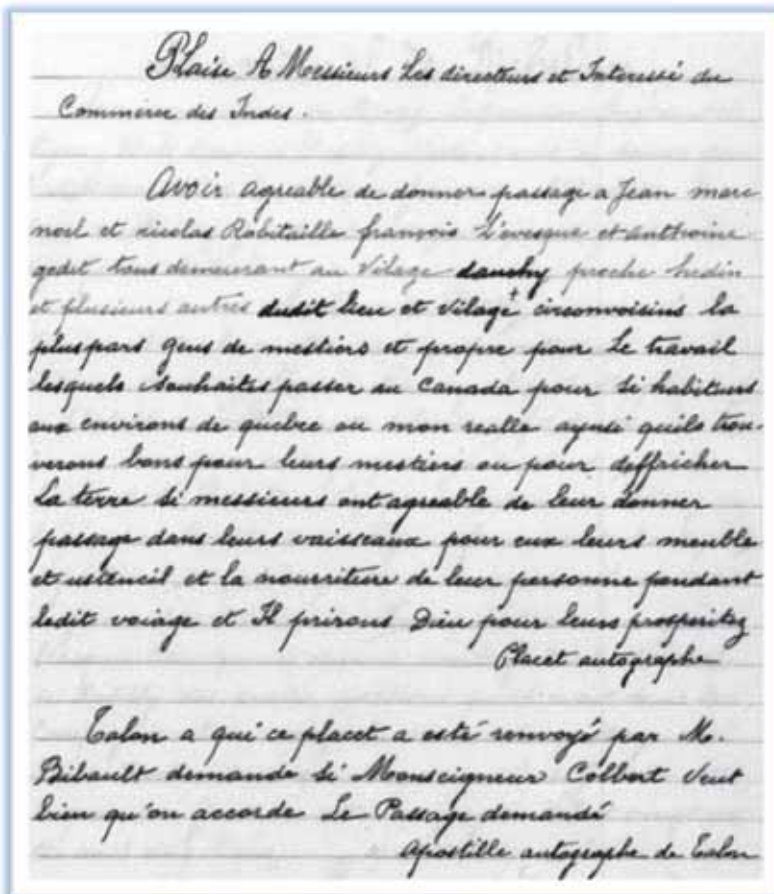 Plaise A Messieurs Les directeurs et Interessé du
Commerce des Indes.
Avoir agreable de donner passage a Jean marc
noel et nicolas Robitaille francois L'evesque et anthoine
gedet tous demeurant au Vilage dauchy proche hedin
et plusieurs autres dudit lieu et vilage circonvoisins la
pluspars gens de mestiers et propre pour Le travail
lesquels souhaites passer au Canada pour si habituer
aux environs de quebec ou mon realle ainsi quils trou-
verons bons pour leurs mestiers ou pour deffricher
La terre si messieurs ont agreable de leur donner
passage dans leurs vaisseaux pour eux leurs meuble
et ustencil et la nourriture de leur personne pendant
ledit voiage et Il prirons Dieu pour leurs prosperitez
Placet autographe
Talon a qui ce placet a esté renvoyé par M.
Bibault demande Si Monseigneur Colbert Veut
bien qu'on accorde Le Passage demandé
Apostille autographe de Talon